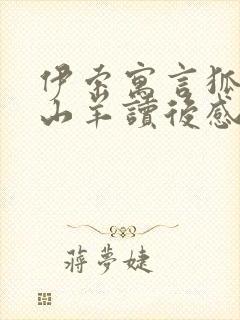 伊索寓言狐
山羊讀後感
蔣夢婕